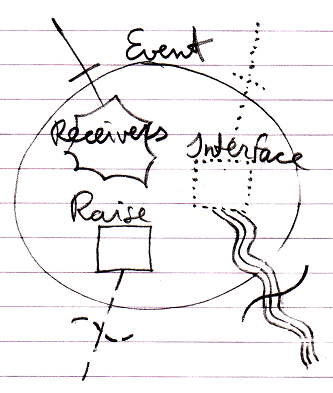 Event
Receivers
Interface
Raise